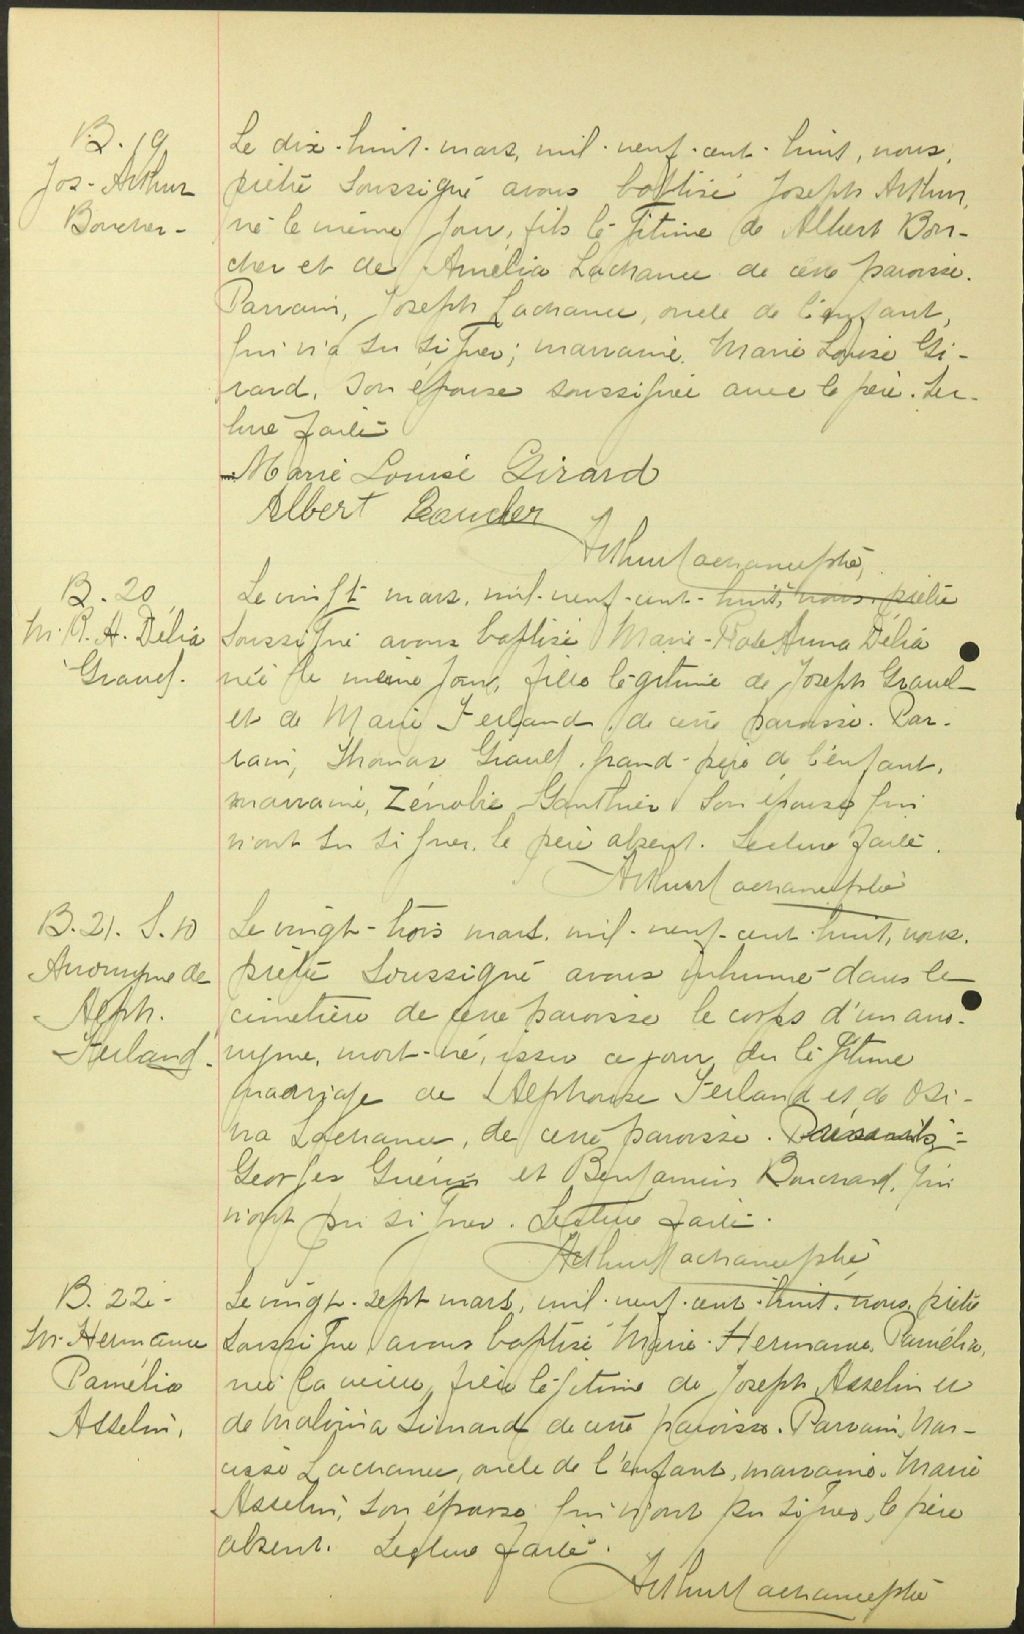 B. 19
Jos-Arthur
Boucher-
Le dix-huit-mars, mil-neuf-cent-huit, nous,
prêtre soussigné avons baptisé Joseph Arthur,
né le même jour, fils légitime de Albert Bou-
cher et de Amélia Lachance de cette paroisse.
Parrain, Joseph Lachance, oncle de l'enfant,
qui n'a su signer; marraine, Marie Louise Gi-
rard, son épouse soussignée avec le père. Lec-
ture faite
Marie Louise Girard
Albert Boucher
Arthur Lachance ptre
B. 20
M. R. A. Délia
Gravel.
Le vingt mars, mil-neuf-cent-huit, nous, prêtre
soussigné avons baptisé Marie-Rose Anna Délia
née le même jour, fille légitime de Joseph Gravel
et de Marie Ferland de cette paroisse. Par-
rain, Thomas Gravel, grand-père de l'enfant,
marraine, Zénobie Gauthier son épouse qui
n'ont su signer, le père absent. Lecture faite.
Arthur Lachance ptre
B. 21. S. 10
Anonyme de
Alph.
Ferland.
Le vingt-trois mars, mil-neuf-cent-huit, nous,
prêtre soussigné avons inhumé dans le
cimetière de cette paroisse le corps d'un ano-
nyme, mort-né, issu ce jour, du légitime
mariage de Alphonse Ferland et de Osi-
na Lachance, de cette paroisse. Présents:
Georges Guérin et Benjamin Bouchard, qui
n'ont pu signer. Lecture faite.
Arthur Lachance ptre
B. 22-
M-Hermance
Pamélia
Asselin,
Le vingt-sept mars, mil-neuf-cent-huit, nous, prêtre
soussigné avons baptisé Marie-Hermance, Pamélia,
née la veille, fille légitime de Joseph Asselin et
de Malvina Simard de cette paroisse. Parrain, Nar-
cisse Lachance, oncle de l'enfant, marraine, Marie
Asselin, son épouse qui n'ont pu signer, le père
absent. Lecture faite.
Arthur Lachance ptre